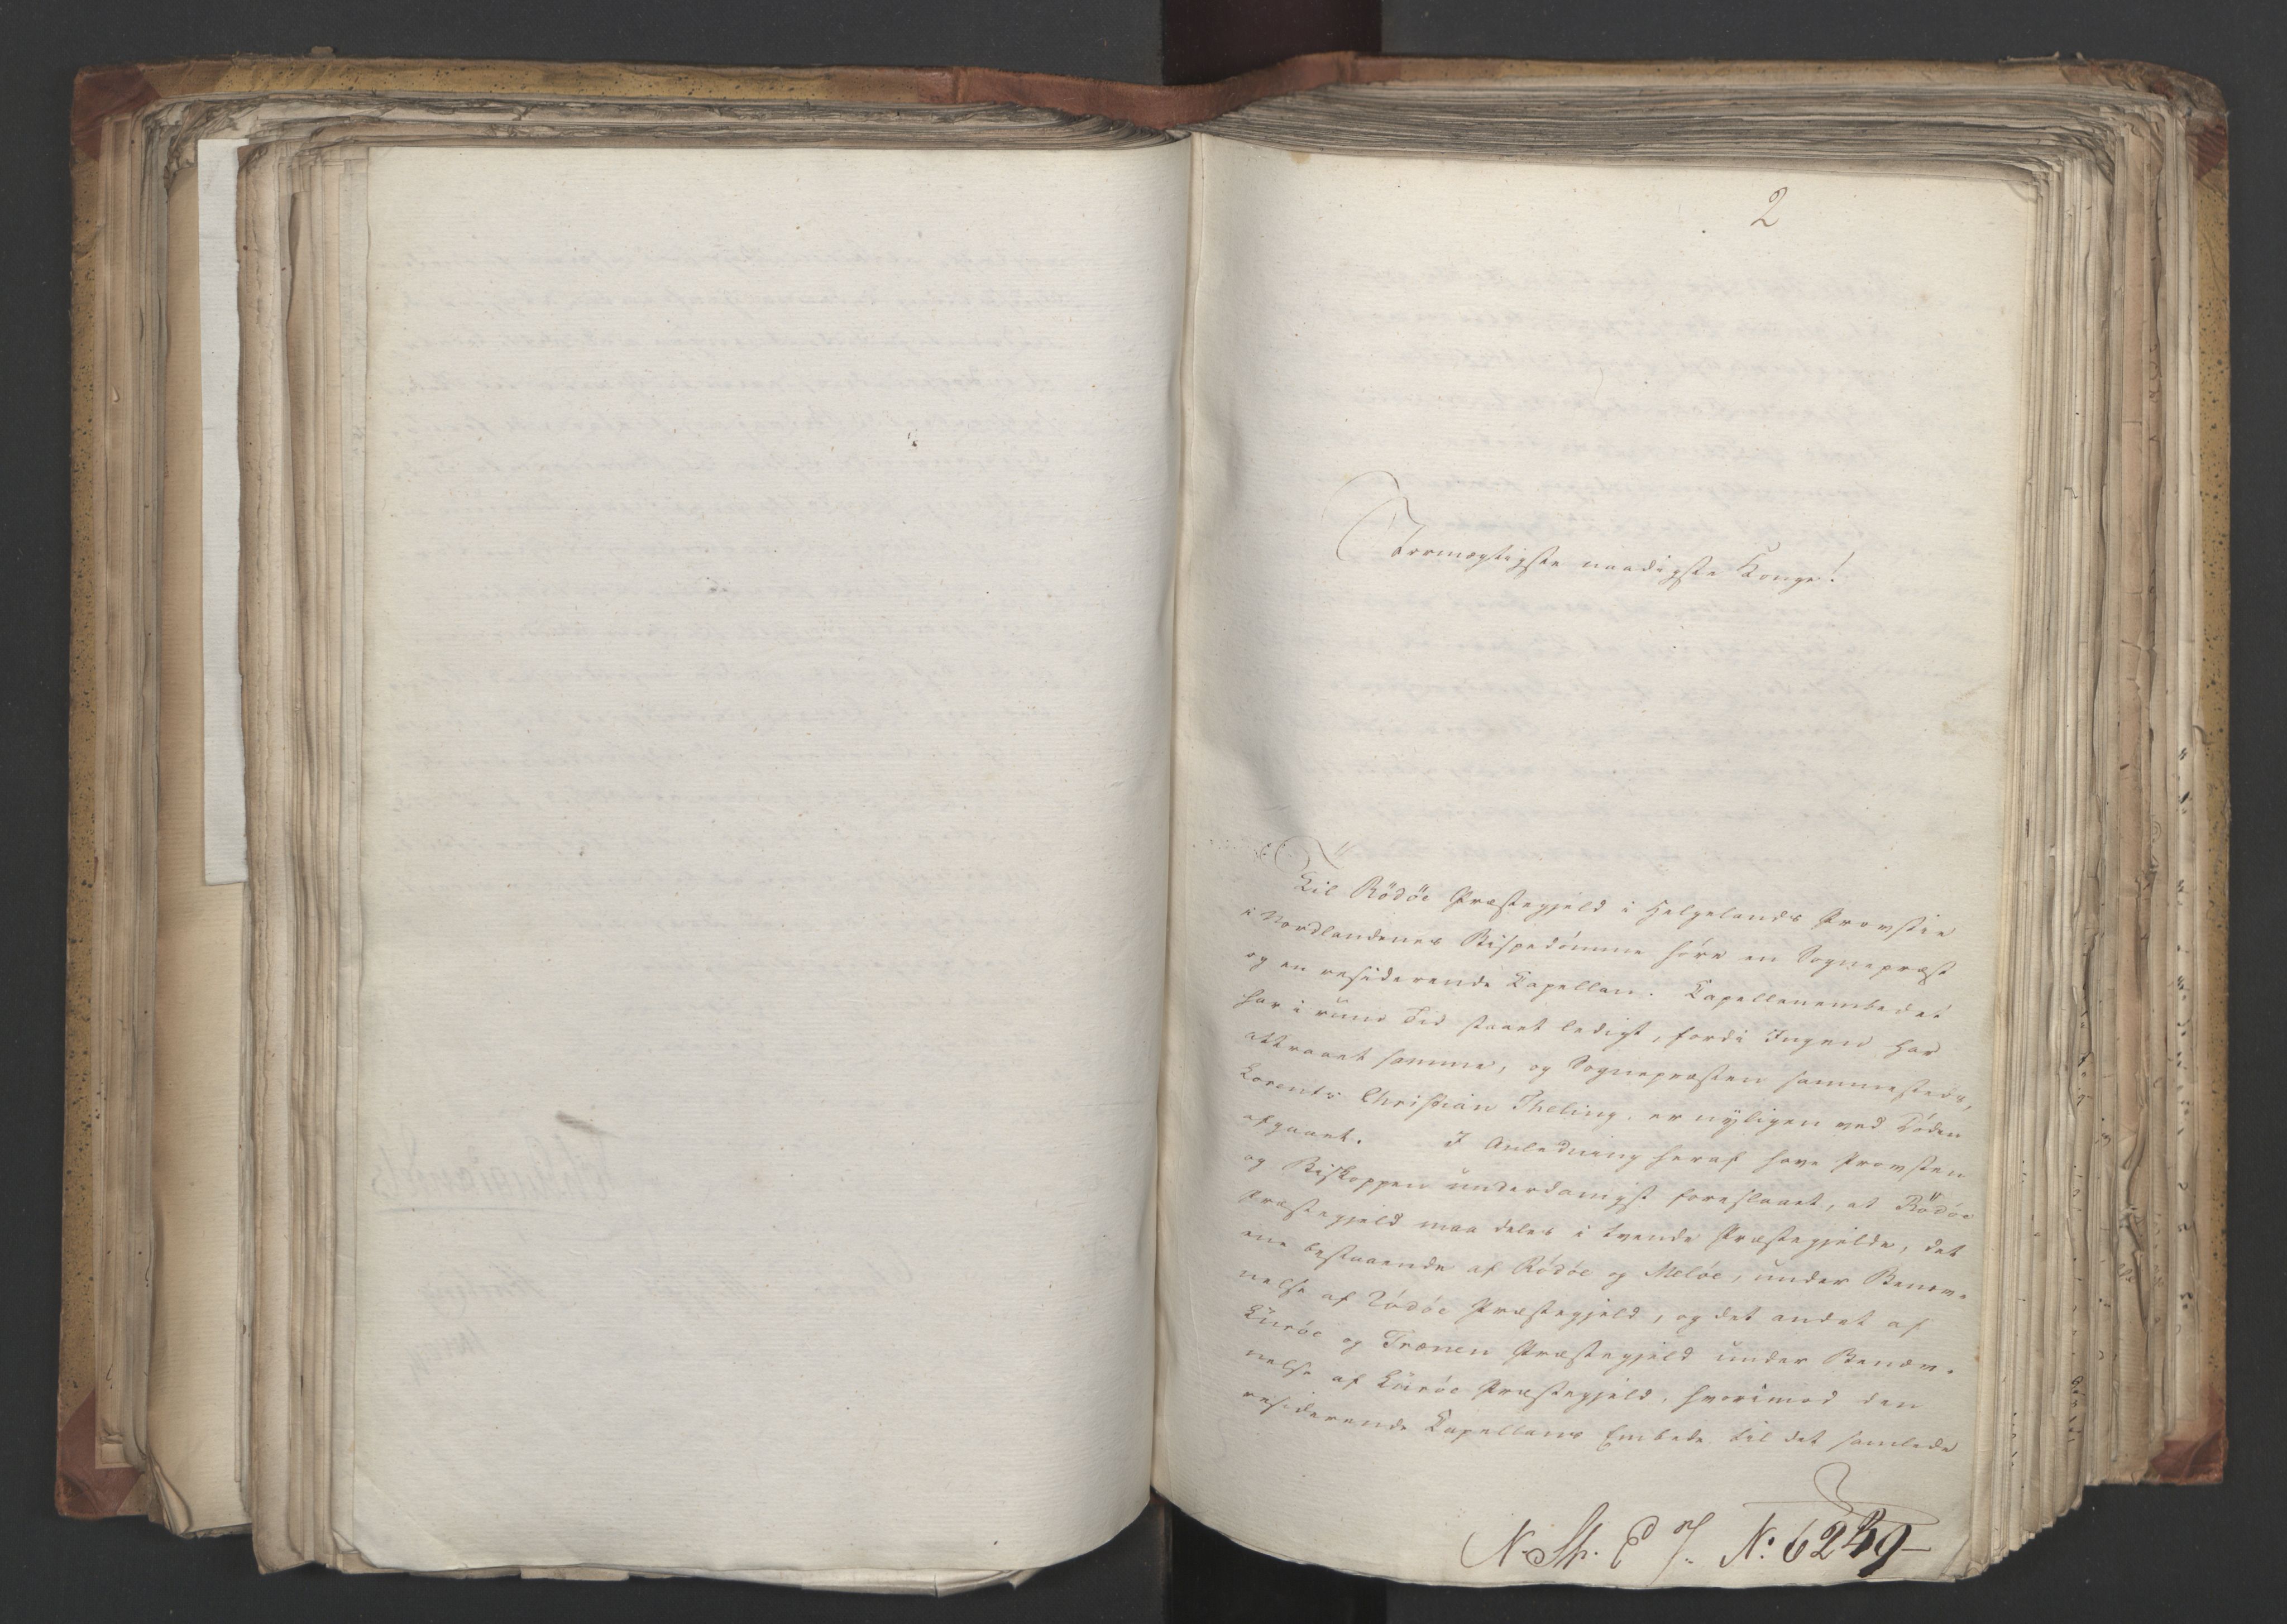 2
Stormægtigste naadigste Konge!
Til Rödöe Præstegjeld i Helgelands Provstie
i Nordlandenes Bispedømme høre en Sognepræst
og en residerende Capellan. Capellanembedet
har i rum Tid staaet ledigt, fordi Ingen har
attraaet samme, og Sognepræsten sammesteds,
Lorents Christian Theling, er nyligen ved Døden
afgaaet. I Anledning heraf have Provsten
og Biskoppen underdanigst foreslaaet, at Rödöe
Præstegjeld maa deles i tvende Præstegjelde, det
ene bestaaende af Rödöe og Melöe, under Benæv-
nelse af Rödöe Præstegjeld, og det andet af
Luröe og Trænen Præstegjeld under Benæv-
nelse af Luröe Præstegjeld, hvorimod den
residerende Capellans Embede til det samlede
N. St. E J. N: 6249